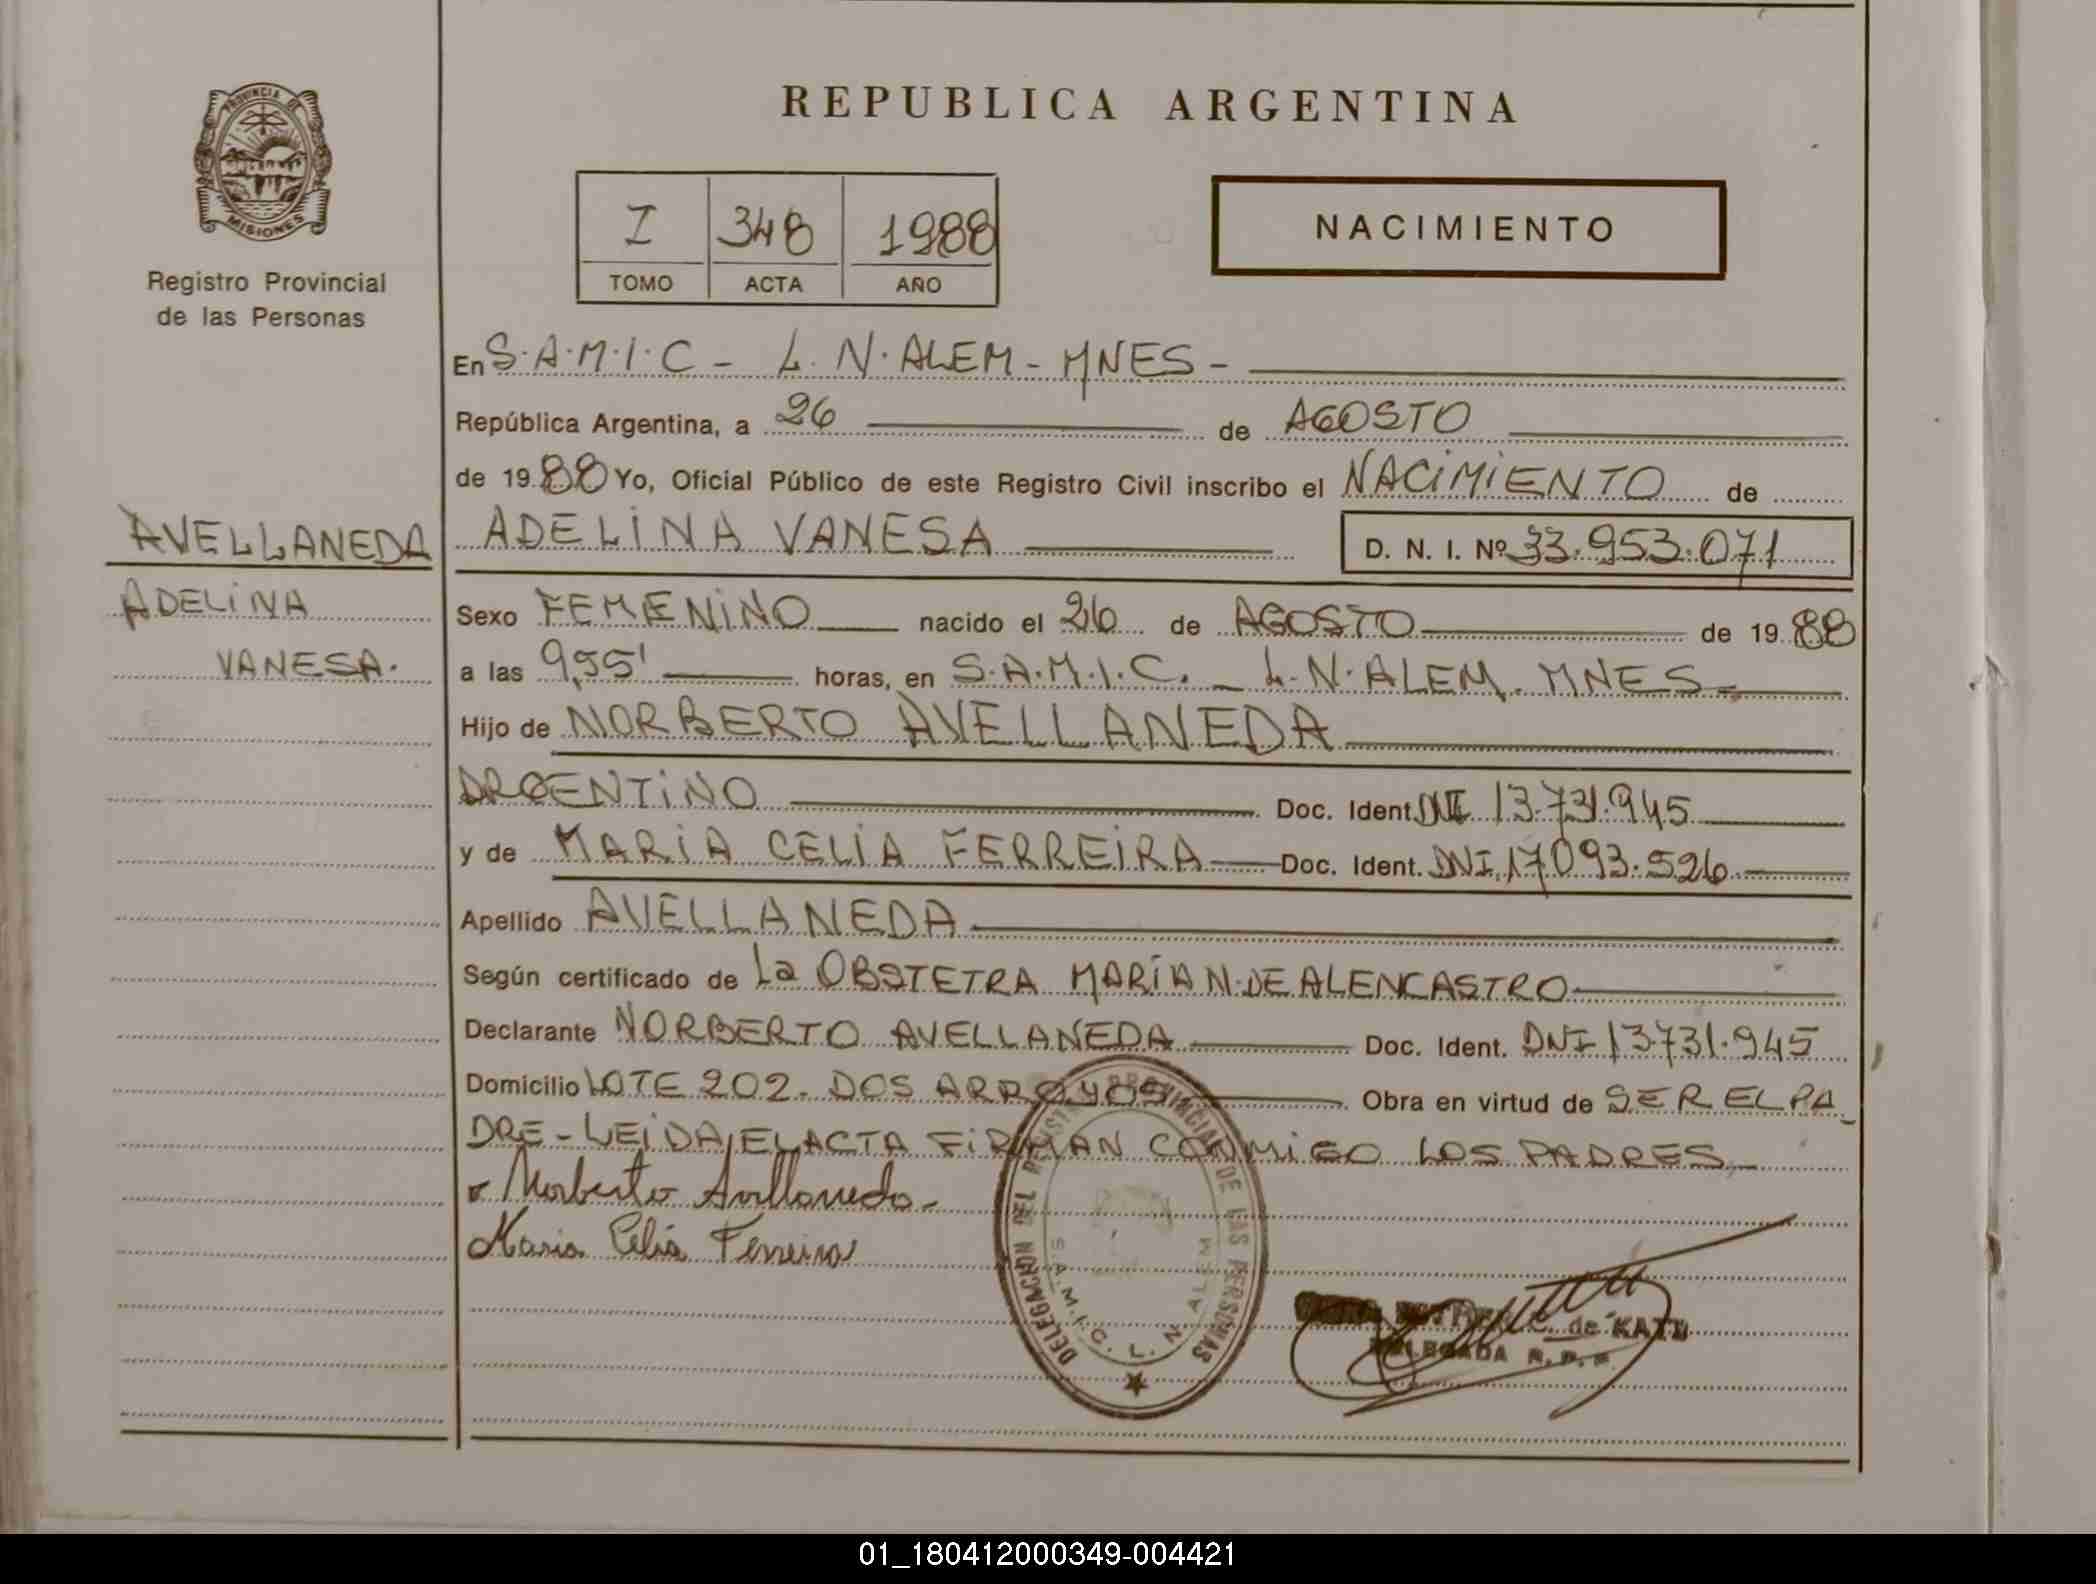 PROVINCIA DE
MISIONES
Registro Provincial
de las Personas
REPUBLICA ARGENTINA
I 348 1988
TOMO ACTA AÑO
NACIMIENTO
En S.A.M.I.C - L.N.ALEM - MNES -
República Argentina, a 26 de AGOSTO
de 1988 Yo, Oficial Público de este Registro Civil inscribo el NACIMIENTO de
AVELLANEDA
ADELINA
VANESA.
ADELINA VANESA D. N. I. Nº 33.953.071
Sexo FEMENINO nacido el 26 de AGOSTO de 1988
a las 9,55' horas, en S.A.M.I.C. - L.N.ALEM. MNES -
Hijo de NORBERTO AVELLANEDA
ARGENTINO Doc. Ident. DNI 13.731.945
y de MARIA CELIA FERREIRA Doc. Ident. DNI.17093.526
Apellido AVELLANEDA
Según certificado de La OBSTETRA MARÍA N. DE ALENCASTRO
Declarante NORBERTO AVELLANEDA Doc. Ident. DNI 13731.945
Domicilio LOTE 202. DOS ARROYOS Obra en virtud de SER EL PA
DRE - LEIDA EL ACTA FIRMAN CONMIGO LOS PADRES -
Norberto Avellaneda -
Maria Celia Ferreira
DELEGACION DEL REGISTRO PROVINCIAL DE LAS PERSONAS
S.A.M.I.C. L. N. ALEM
de KATU
DELEGADA R. P. P.
01_180412000349-004421